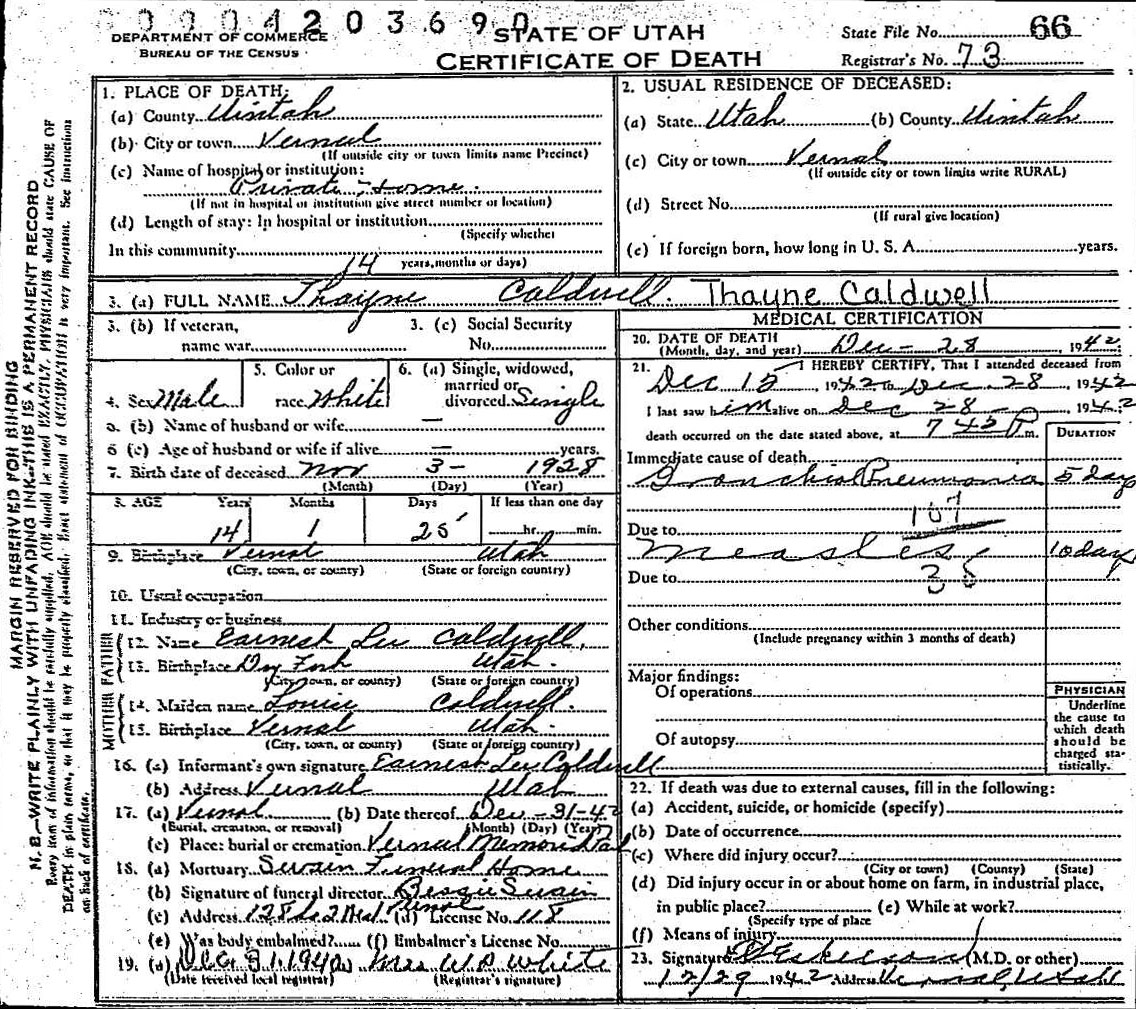 0004203690
DEPARTMENT OF COMMERCE
BUREAU OF THE CENSUS
STATE OF UTAH
CERTIFICATE OF DEATH
State File No. 66
Registrar's No. 73
MARGIN RESERVED FOR BINDING
N. B.—WRITE PLAINLY WITH UNFADING INK—THIS IS A PERMANENT RECORD
Every item of information should be carefully supplied. AGE should be stated EXACTLY. PHYSICIANS should state CAUSE OF
DEATH in plain terms, so that it may be properly classified. Exact statement of OCCUPATION is very important. See instructions
on back of certificate.
1. PLACE OF DEATH:
(a) County Uintah
(b) City or town Vernal
(If outside city or town limits name Precinct)
(c) Name of hospital or institution:
Private Home.
(If not in hospital or institution give street number or location)
(d) Length of stay: In hospital or institution
(Specify whether
In this community 14
years, months or days)
2. USUAL RESIDENCE OF DECEASED:
(a) State Utah (b) County Uintah
(c) City or town Vernal
(If outside city or town limits write RURAL)
(d) Street No.
(If rural give location)
(e) If foreign born, how long in U. S. A. years.
3. (a) FULL NAME Thayne Caldwell. Thayne Caldwell
3. (b) If veteran, name war
3. (c) Social Security No.
4. Sex Male
5. Color or race White
6. (a) Single, widowed, married or divorced Single
6. (b) Name of husband or wife —
6 (c) Age of husband or wife if alive — years.
7. Birth date of deceased Nov 3- 1928
(Month) (Day) (Year)
8. AGE Years Months Days If less than one day
14 1 25 hr. min.
9. Birthplace Vernal Utah
(City, town, or county) (State or foreign country)
10. Usual occupation
11. Industry or business
FATHER
12. Name Earnest Lee Caldwell,
13. Birthplace Dry Fork Utah.
(City, town, or county) (State or foreign country)
MOTHER
14. Maiden name Louise Caldwell.
15. Birthplace Vernal Utah.
(City, town, or county) (State or foreign country)
16. (a) Informant's own signature Earnest Lee Caldwell
(b) Address Vernal Utah
17. (a) Vernal (b) Date thereof Dec -31-42
(Burial, cremation, or removal) (Month) (Day) (Year)
(c) Place: burial or cremation Vernal Memorial
18. (a) Mortuary Swain Funeral Home
(b) Signature of funeral director Bessie Swain
(c) Address Vernal (d) License No. 118
(e) Was body embalmed? (f) Embalmer's License No.
19. (a) Dec 31 1942 Mrs W.D. White
(Date received local registrar) (Registrar's signature)
MEDICAL CERTIFICATION
20. DATE OF DEATH
(Month, day, and year) Dec - 28, 1942
21. I HEREBY CERTIFY, That I attended deceased from
Dec 15, 1942 to Dec. 28, 1942
I last saw him alive on Dec 28, 1942
death occurred on the date stated above, at 7 45 P m.
DURATION
Immediate cause of death
Bronchial Pneumonia 5 days
107
Due to
Measles 10 days
35
Due to
Other conditions
(Include pregnancy within 3 months of death)
Major findings:
Of operations
Of autopsy
PHYSICIAN
Underline
the cause to
which death
should be
charged sta-
tistically.
22. If death was due to external causes, fill in the following:
(a) Accident, suicide, or homicide (specify)
(b) Date of occurrence
(c) Where did injury occur?
(City or town) (County) (State)
(d) Did injury occur in or about home on farm, in industrial place,
in public place? (e) While at work?
(Specify type of place
(f) Means of injury
23. Signature (M.D. or other)
12/29 1942 Address Vernal, Utah